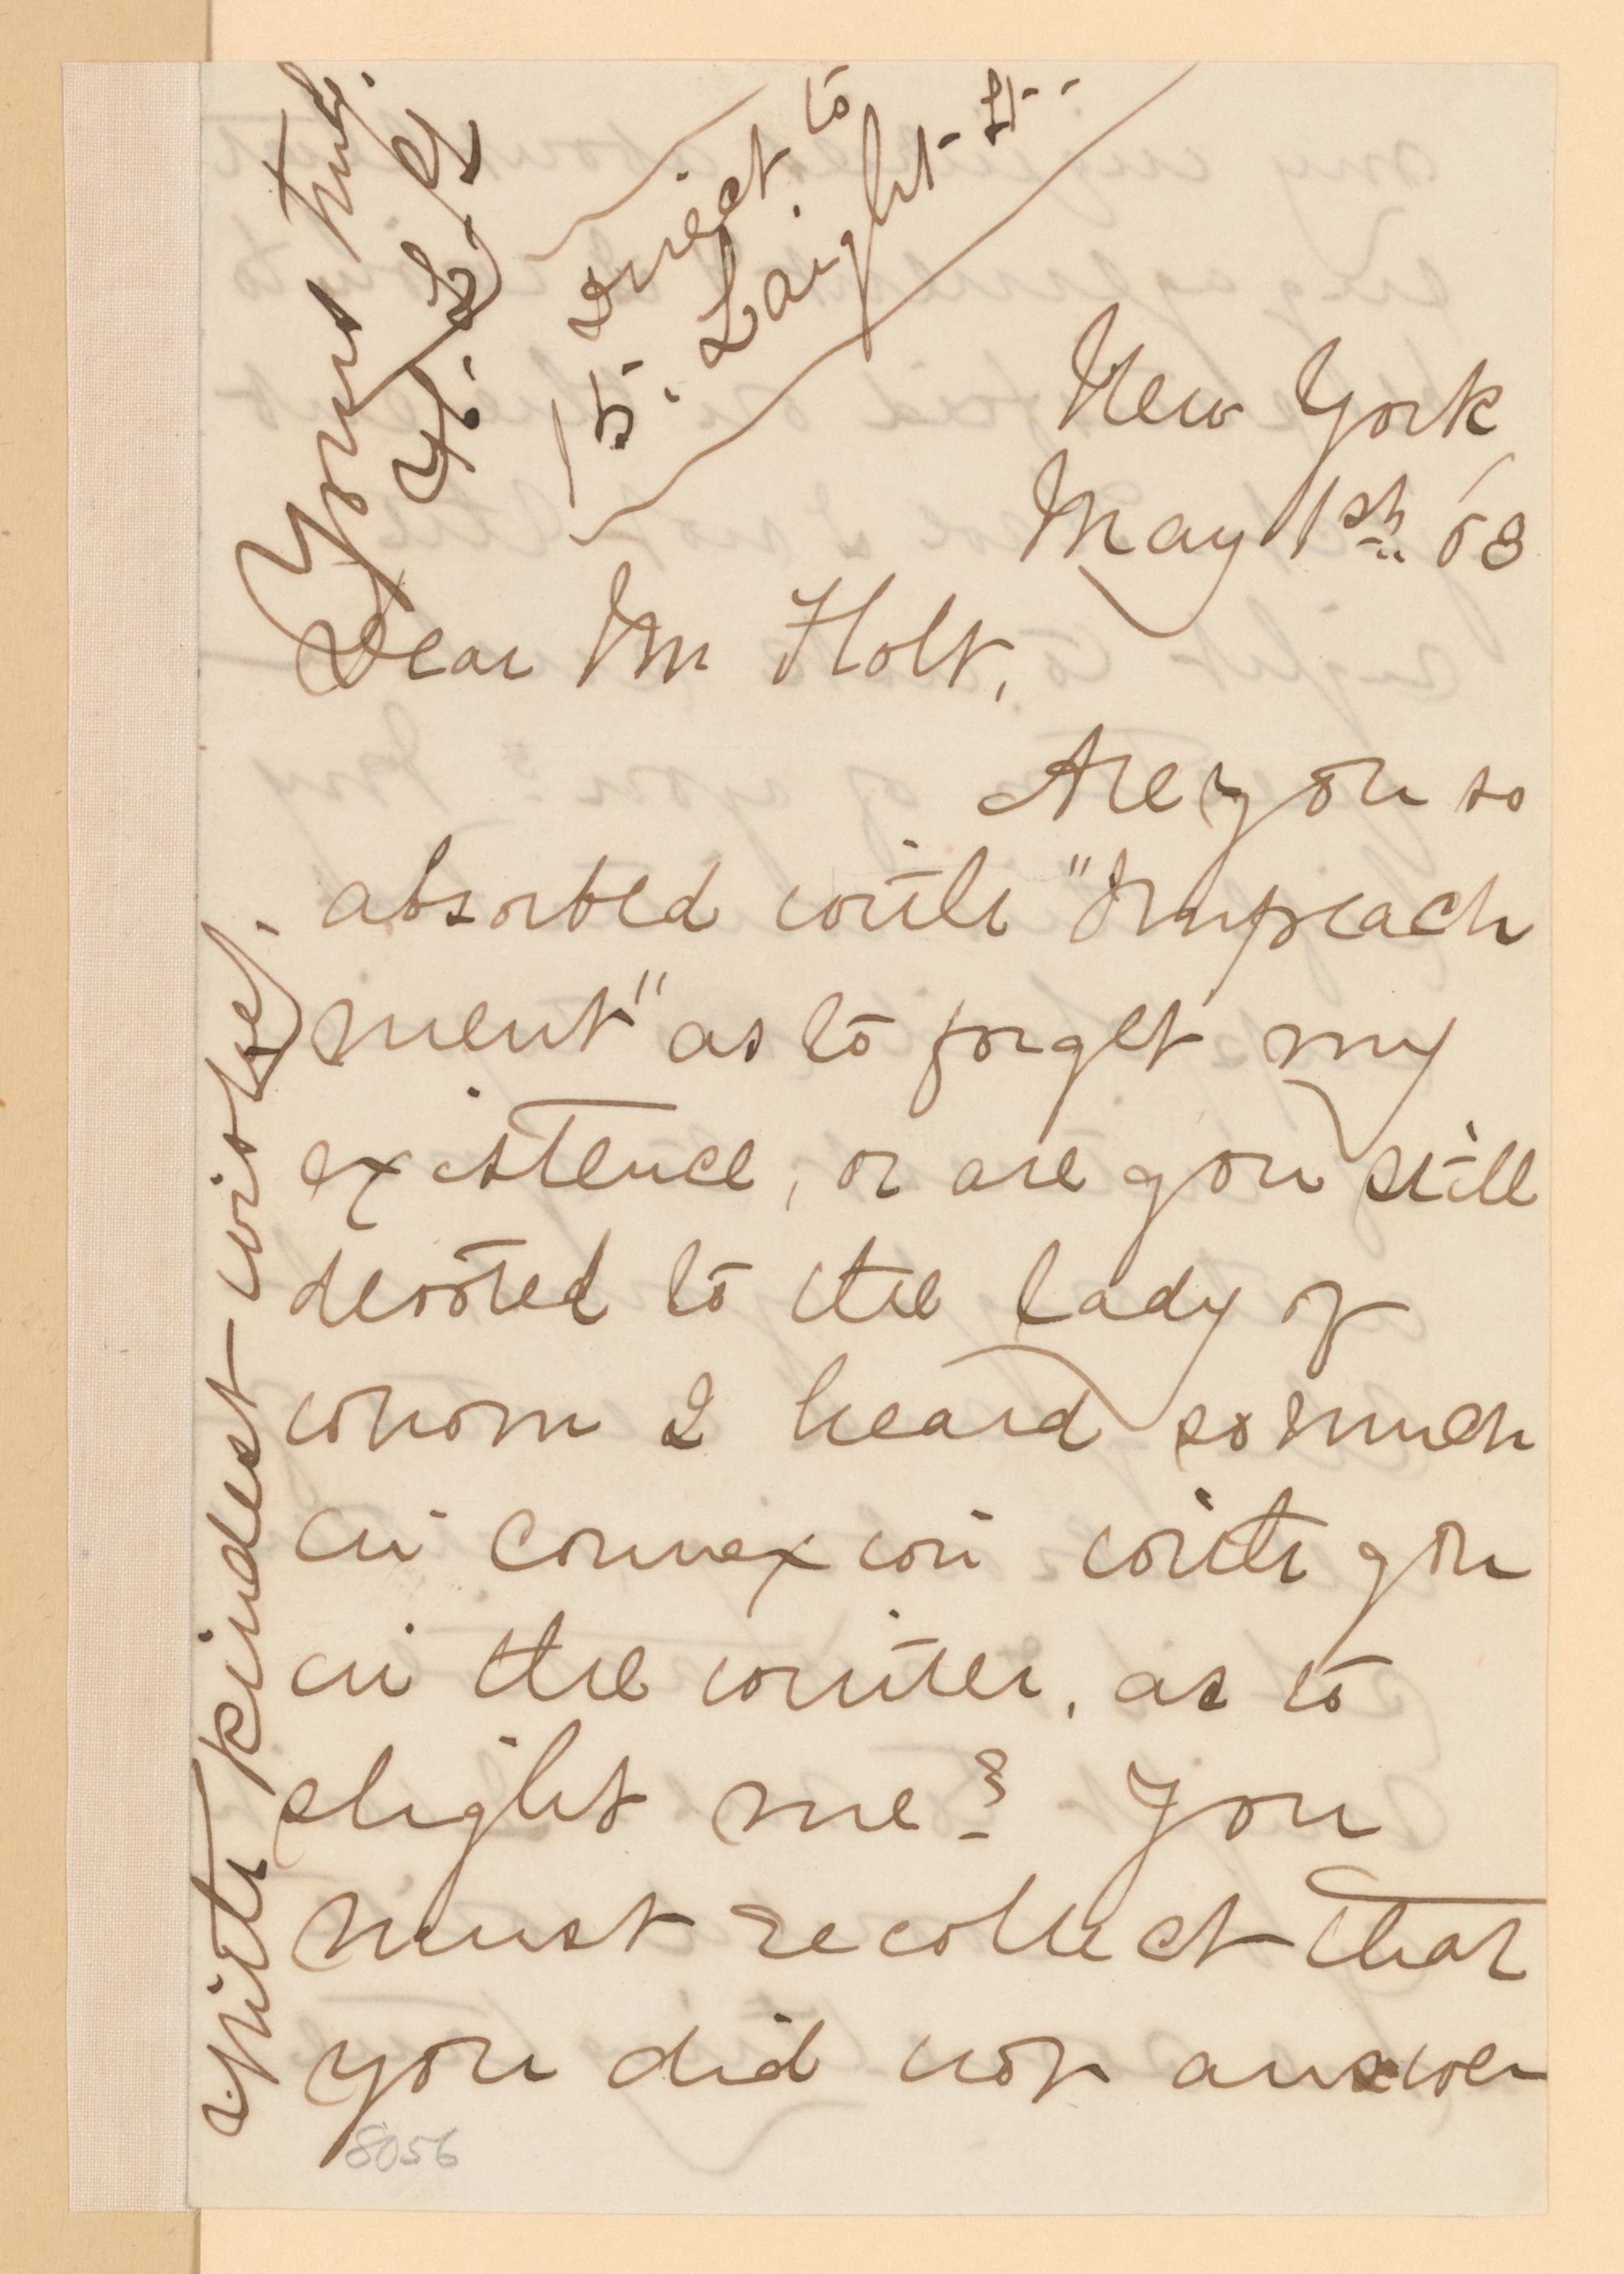 New York
May 1st '68
Dear Mr Holt,
Are you so
absorbed with "Impeach
ment" as to forget my
existence, or are you still
devoted to the lady of
whom I heard so much
in connexion with you
in the winter, as to
slight me? You
must recollect that
you did not answer
8056
With kindest wishes,
Yours truly
Direct to
15. Laight St.